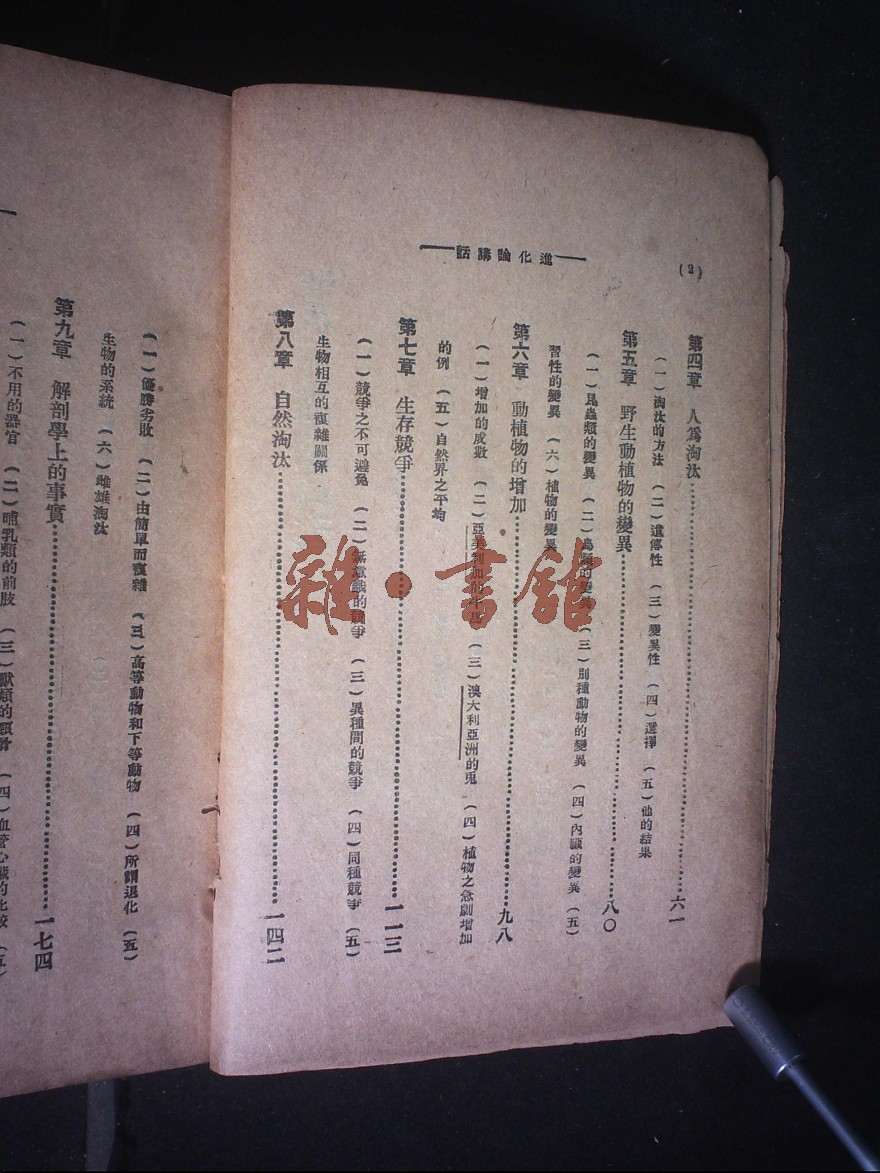 (2)
進化論講話
第四章 人爲淘汰……六一
(一)淘汰的方法 (二)遺傳性 (三)變異性 (四)選擇 (五)他的結果
第五章 野生動植物的變異……八〇
(一)昆蟲類的變異 (二)鳥類的變異 (三)別種動物的變異 (四)內臟的變異 (五)
習性的變異 (六)植物的變異
第六章 動植物的增加……九八
(一)增加的成數 (二)亞美利加的牛馬 (三)澳大利亞洲的兎 (四)植物之急劇增加
的例 (五)自然界之平均
第七章 生存競爭……一一三
(一)競爭之不可避免 (二)無意識的競爭 (三)異種間的競爭 (四)同種競爭 (五)
生物相互的複雜關係
第八章 自然淘汰……一四二
(一)優勝劣敗 (二)由簡單而複雜 (三)高等動物和下等動物 (四)所謂退化 (五)
生物的系統 (六)雌雄淘汰
第九章 解剖學上的事實……一七四
(一)不用的器官 (二)哺乳類的前肢 (三)獸類的頸骨 (四)血管心臟的比較 (五)
雜·書館